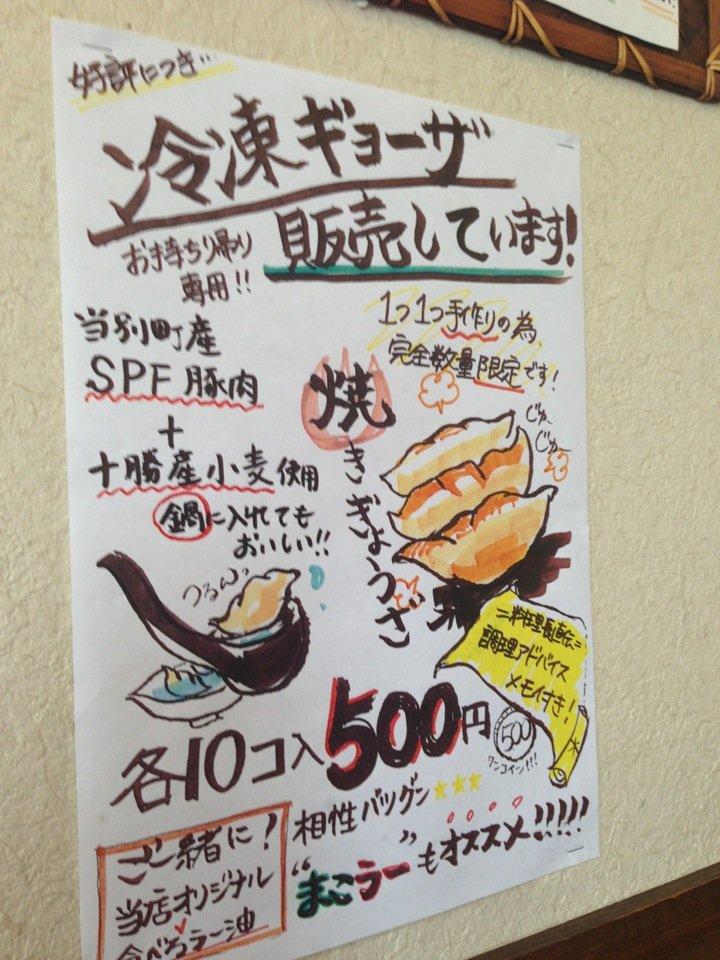 好評につき…
冷凍ギョーザ
販売しています!
お持ち帰り
専用!!
当別町産
SPF豚肉
+
十勝産小麦使用
鍋に入れても
おいしい!!
つるんっ
1つ1つ手作りの為、
完全数量限定です!
焼きぎょうざ
じゅ〜
じゅ〜
料理長直伝
調理アドバイス
メモ付き!
各10コ入500円
500
ワンコイン!!!
ご一緒に!
当店オリジナル
食べるラー油
相性バツグン★★★
"まこラー"もオススメ!!!!!